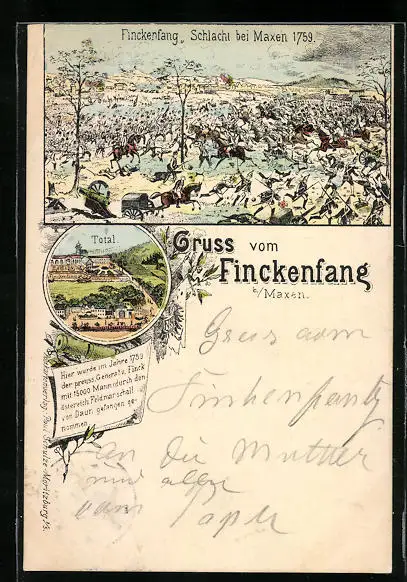 Finckenfang, Schlacht bei Maxen 1759.
Total.
Gruss vom
Finckenfang
b/Maxen.
Hier wurde im Jahre 1759
der preuss. General v. Finck
mit 15000 Mann durch den
österreich. Feldmarschall
von Daun gefangen ge-
nommen.
Paul Schulze Moritzburg i/S.
Gruss vom
Finkenfang
an die Mutter
und alle
vom Papa